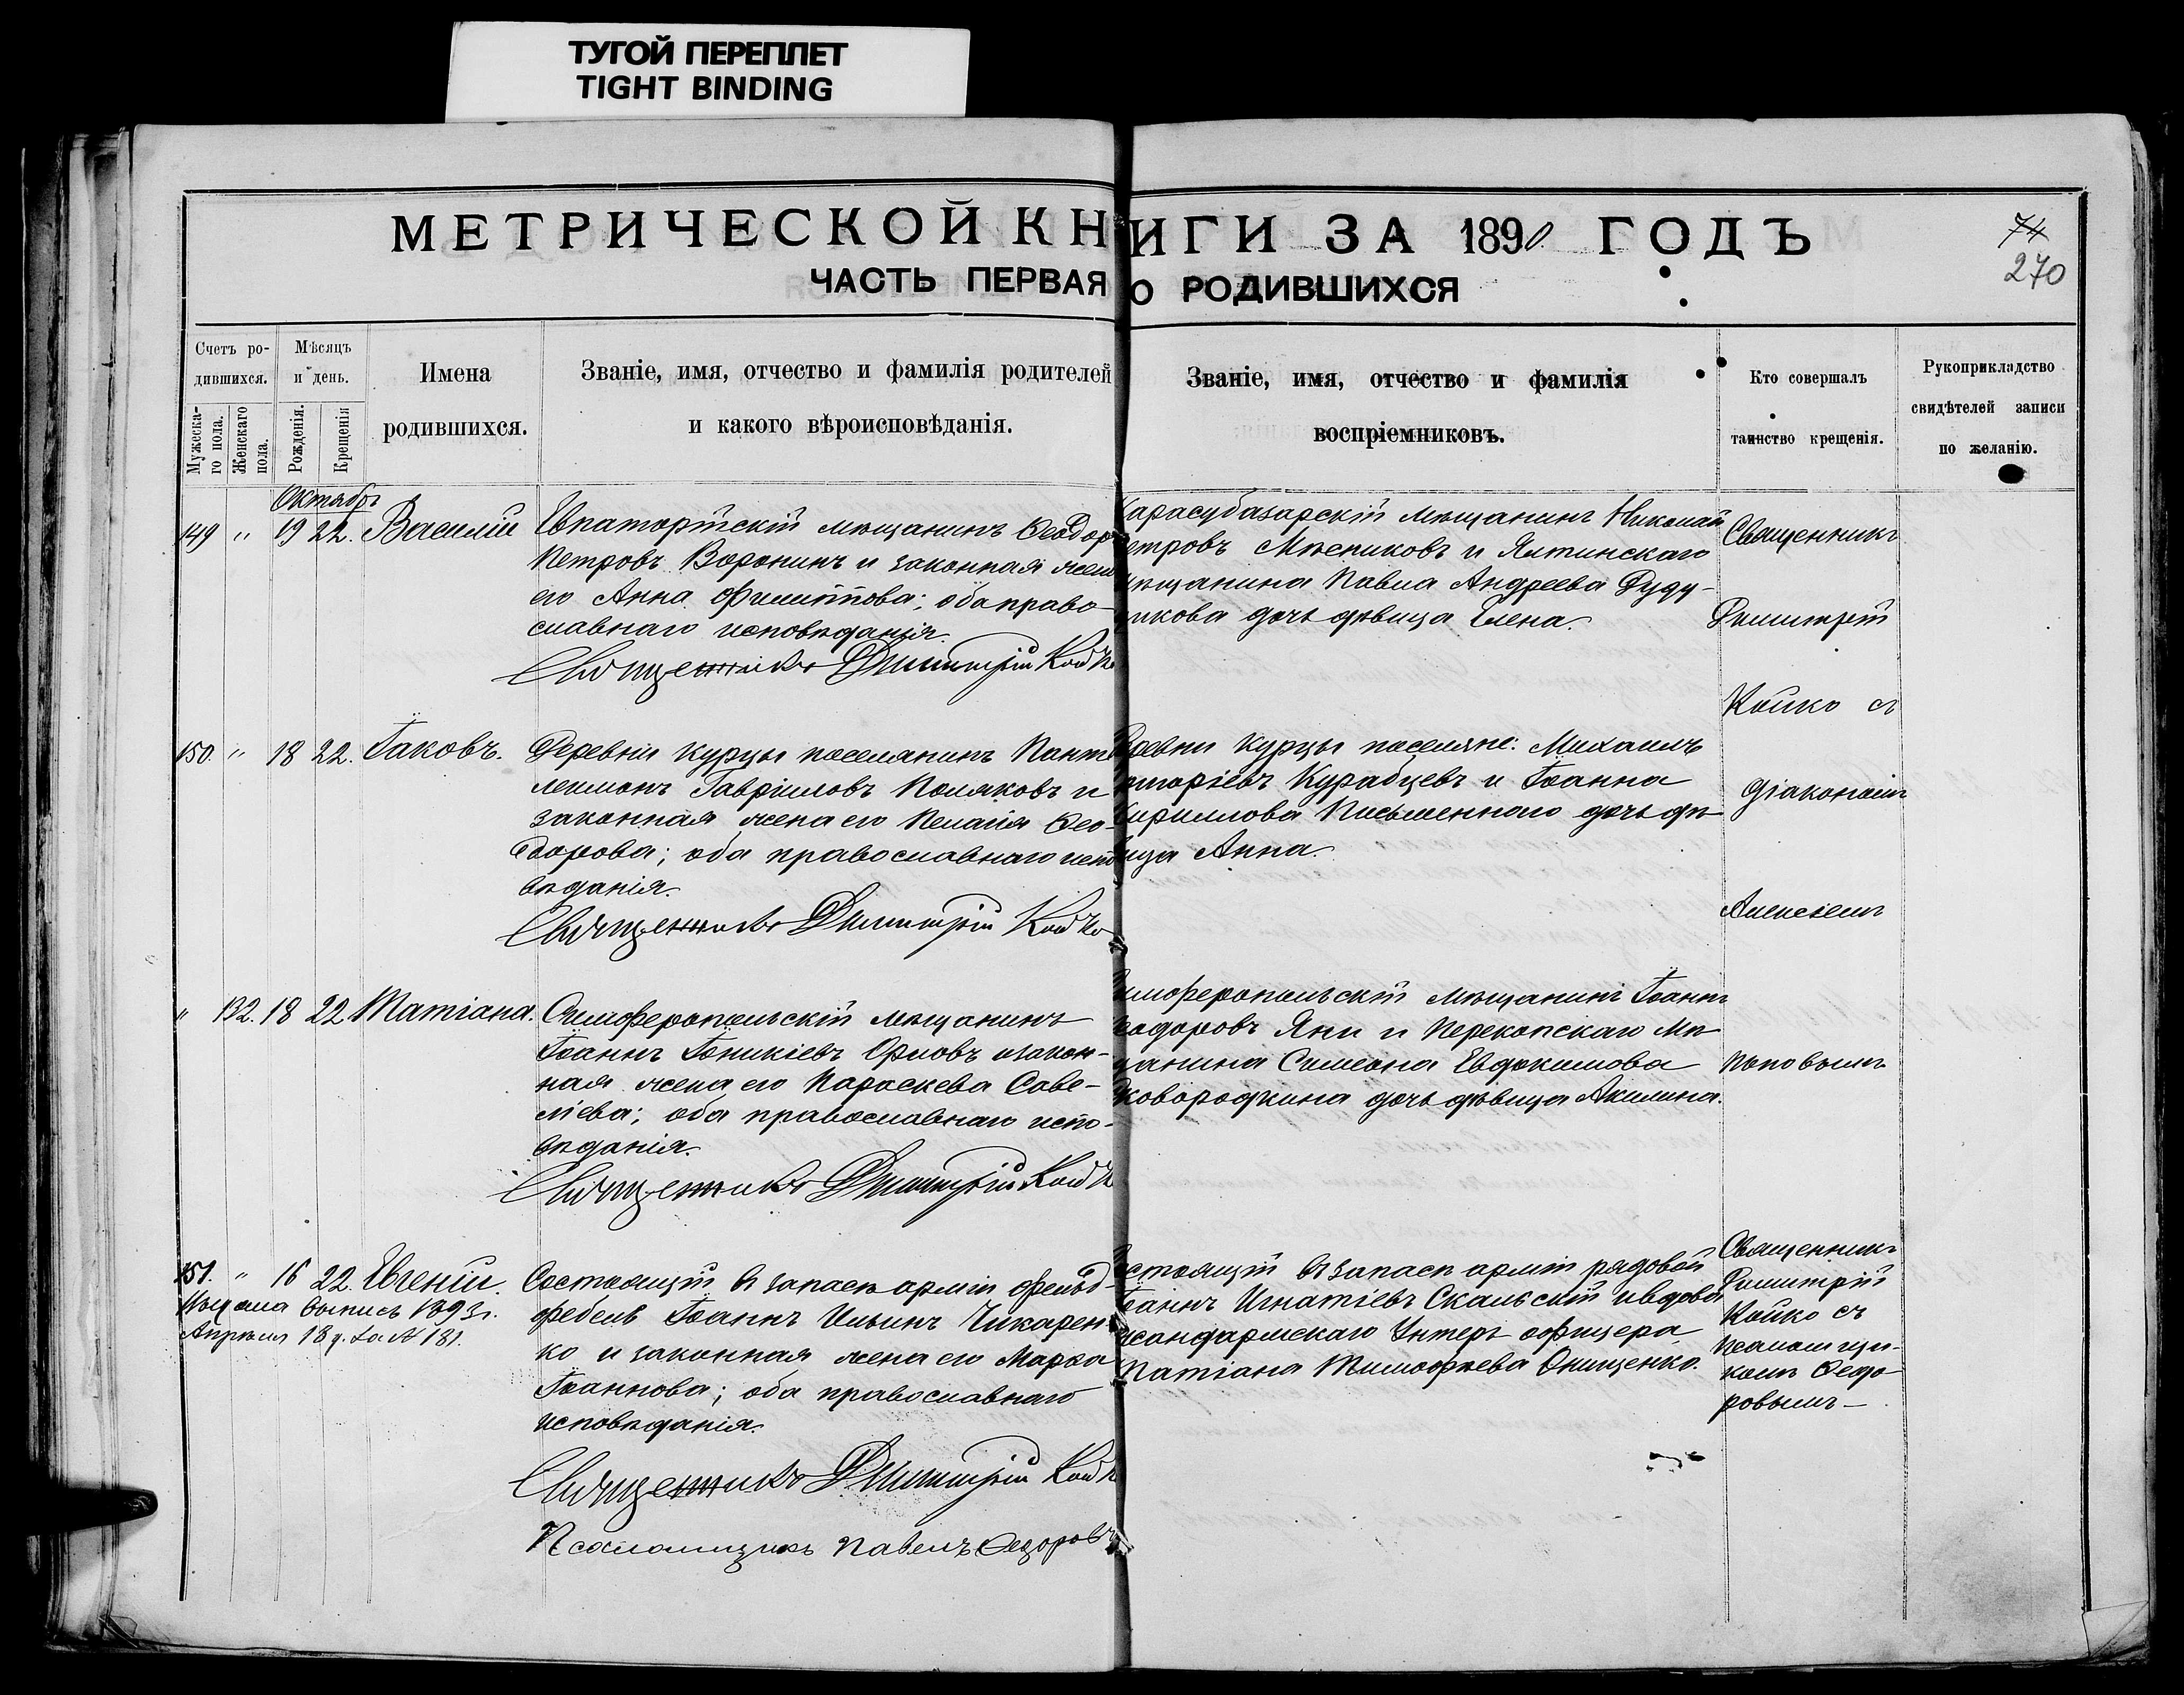 ТУГОЙ ПЕРЕПЛЕТ
TIGHT BINDING
МЕТРИЧЕСКОЙ КНИГИ ЗА 1890 ГОДЪ
ЧАСТЬ ПЕРВАЯ О РОДИВШИХСЯ
74
270
Счетъ ро-
дившихся.
Мужеска-
го пола.
Женскаго
пола.
Мѣсяцъ
и день.
Рожденія.
Крещенія
Имена
родившихся.
Званіе, имя, отчество и фамилія родителей
и какого вѣроисповѣданія.
Званіе, имя, отчество и фамилія
воспріемниковъ.
Кто совершалъ
таинство крещенія.
Рукоприкладство
свидѣтелей записи
по желанію.
Октябрь
149 " 19 22. Василій
Евпаторійскій мѣщанинъ Феодоръ
Петровъ Воронинъ и законная жена
его Анна Филиппова; оба право-
славнаго исповѣданія.
Священникъ Димитрій Койко
Карасубазарскій мѣщанинъ Николай
Петровъ и Ялтинскаго
мѣщанина Павла Андреева Дуду-
никова дочь дѣвица Елена.
Священникъ
Димитрій
Койко съ
діакономъ
Алексѣемъ
Поповымъ
150. " 18 22. Іаковъ.
Деревни Курцы поселянинъ Панте-
леимонъ Гавріиловъ Поляковъ и
законная жена его Пелагія Фео-
дорова; оба православнаго испо-
вѣданія.
Священникъ Димитрій Койко
Деревни Курцы поселяне: Михаилъ
Григоріевъ Курабцевъ и Іоанна
Кириллова Письменнаго дочь дѣ-
вица Анна.
" 132. 18 22 Татіана.
Симферопольскій мѣщанинъ
Іоаннъ Іоникіевъ Орловъ и закон-
ная жена его Параскева Саве-
ліева; оба православнаго испо-
вѣданія.
Священникъ Димитрій Койко
Симферопольскій мѣщанинъ Іоаннъ
Феодоровъ Яни и Перекопскаго мѣ-
щанина Симеона Евдокимова
Сковородкина дочь дѣвица Акилина.
151. " 16 22. Евгеній.
выпись 1893 г.
Апрѣля 18 д. за № 181.
Состоящій въ запасѣ арміи фельд-
фебель Іоаннъ Ильинъ Чикарен-
ко и законная жена его Марѳа
Іоаннова; оба православнаго
исповѣданія.
Священникъ Димитрій Койко
Псаломщикъ Павелъ Федоровъ
Состоящій въ запасѣ арміи рядовой
Іоаннъ Игнатіевъ Скальскій и вдова
жандармскаго Унтеръ офицера
Татіана Тимофѣева Онищенко.
Священникъ
Димитрій
Койко съ
псаломщи-
комъ Федо-
ровымъ